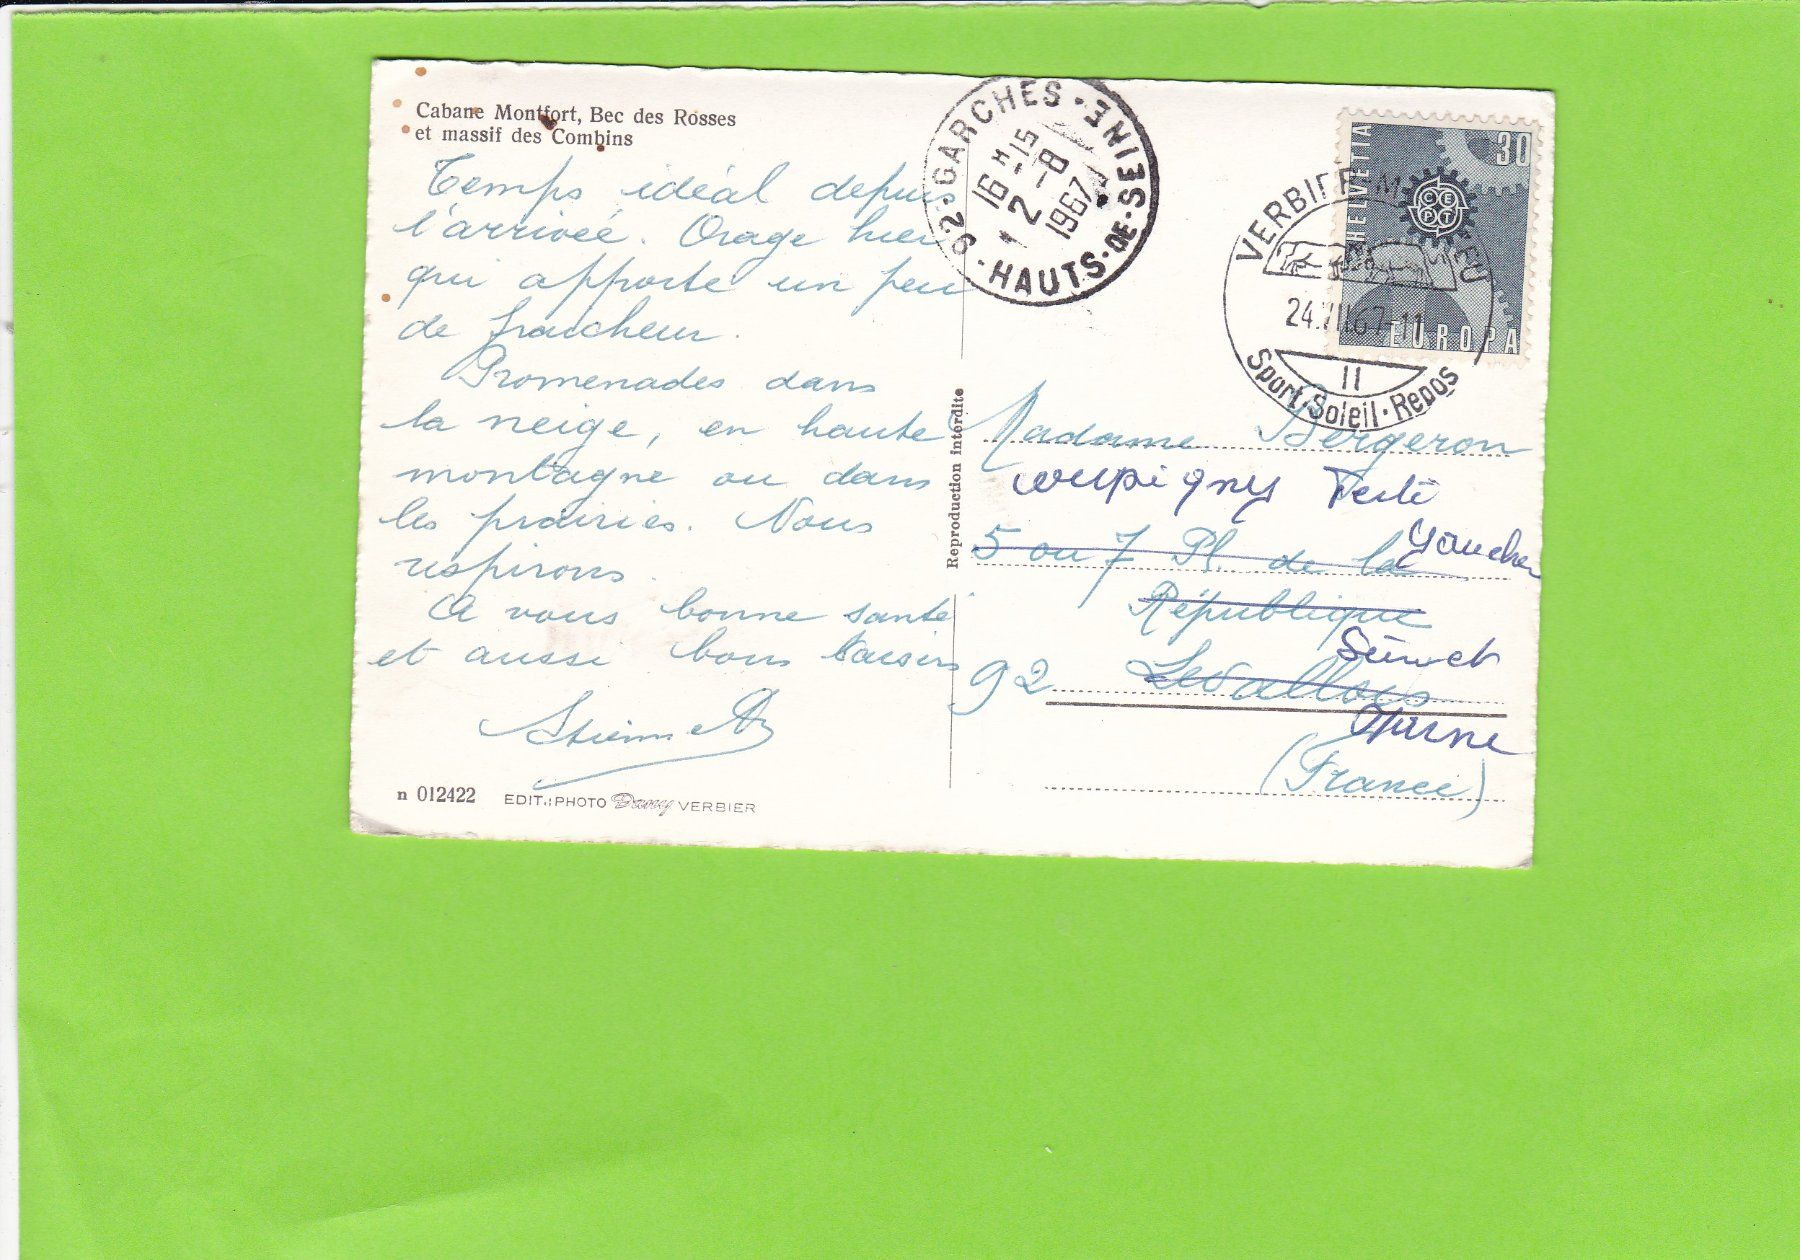 Cabane Montfort, Bec des Rosses
et massif des Combins
Temps idéal depuis
l'arrivée. Orage hier
qui apporte un peu
de fraîcheur.
Promenades dans
la neige, en haute
montagne ou dans
les prairies. Nous
respirons.
A vous bonne santé
et aussi bons
n 012422 EDIT.:PHOTO Darcy VERBIER
Reproduction interdite
92·GARCHES·
16 H -15
2 -8
1967
·HAUTS-DE-SEINE·
HELVETIA
30
CEPT
EUROPA
VERBIER
24.VII.67-11
II
Sport·Soleil·Repos
Madame Bergeron
5 ou 7 Pl. de la
République
92 Levallois
(France)